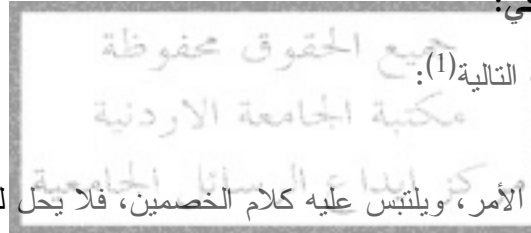 في:
جميع الحقوق محفوظة
التالية(1):
مكتبة الجامعة الاردنية
مركز ايداع الرسائل الجامعية
الأمر، ويلتبس عليه كلام الخصمين، فلا يحل